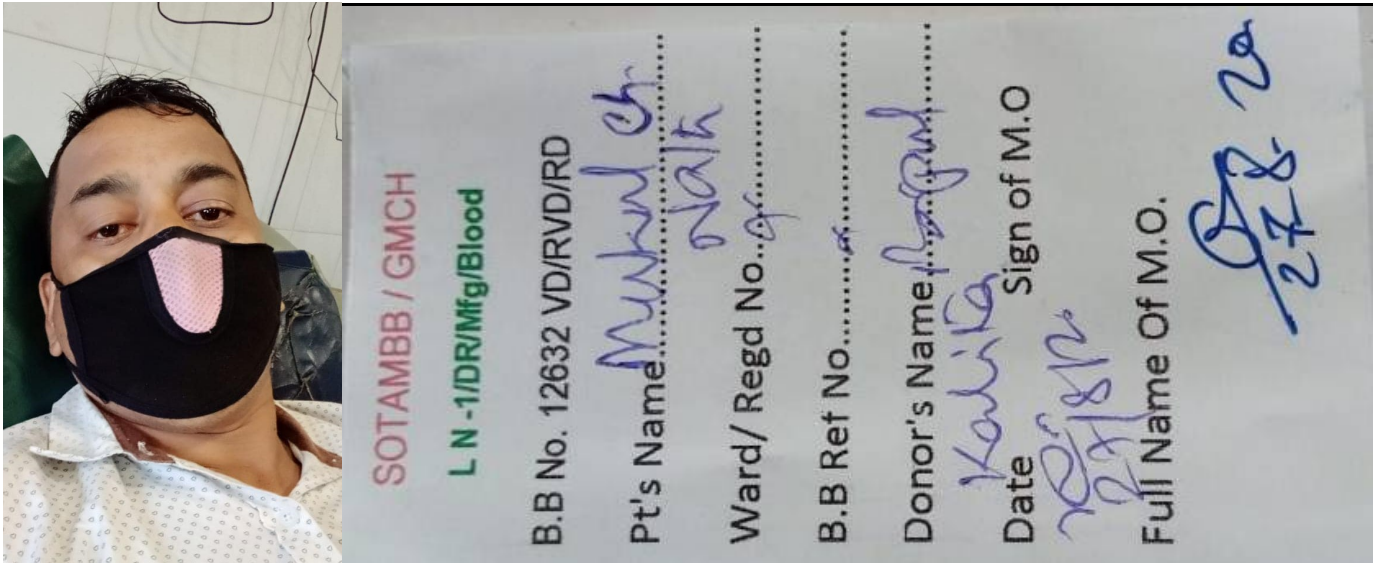 SOTAMBB / GMCH
L N -1/DR/Mfg/Blood
B.B No. 12632 VD/RVD/RD
Pt's Name Mukul Ch
Nath
Ward/ Regd No.
B.B Ref No.
Donor's Name
Kalita
Date Sign of M.O
27/8/20
Full Name Of M.O.
27.8.20